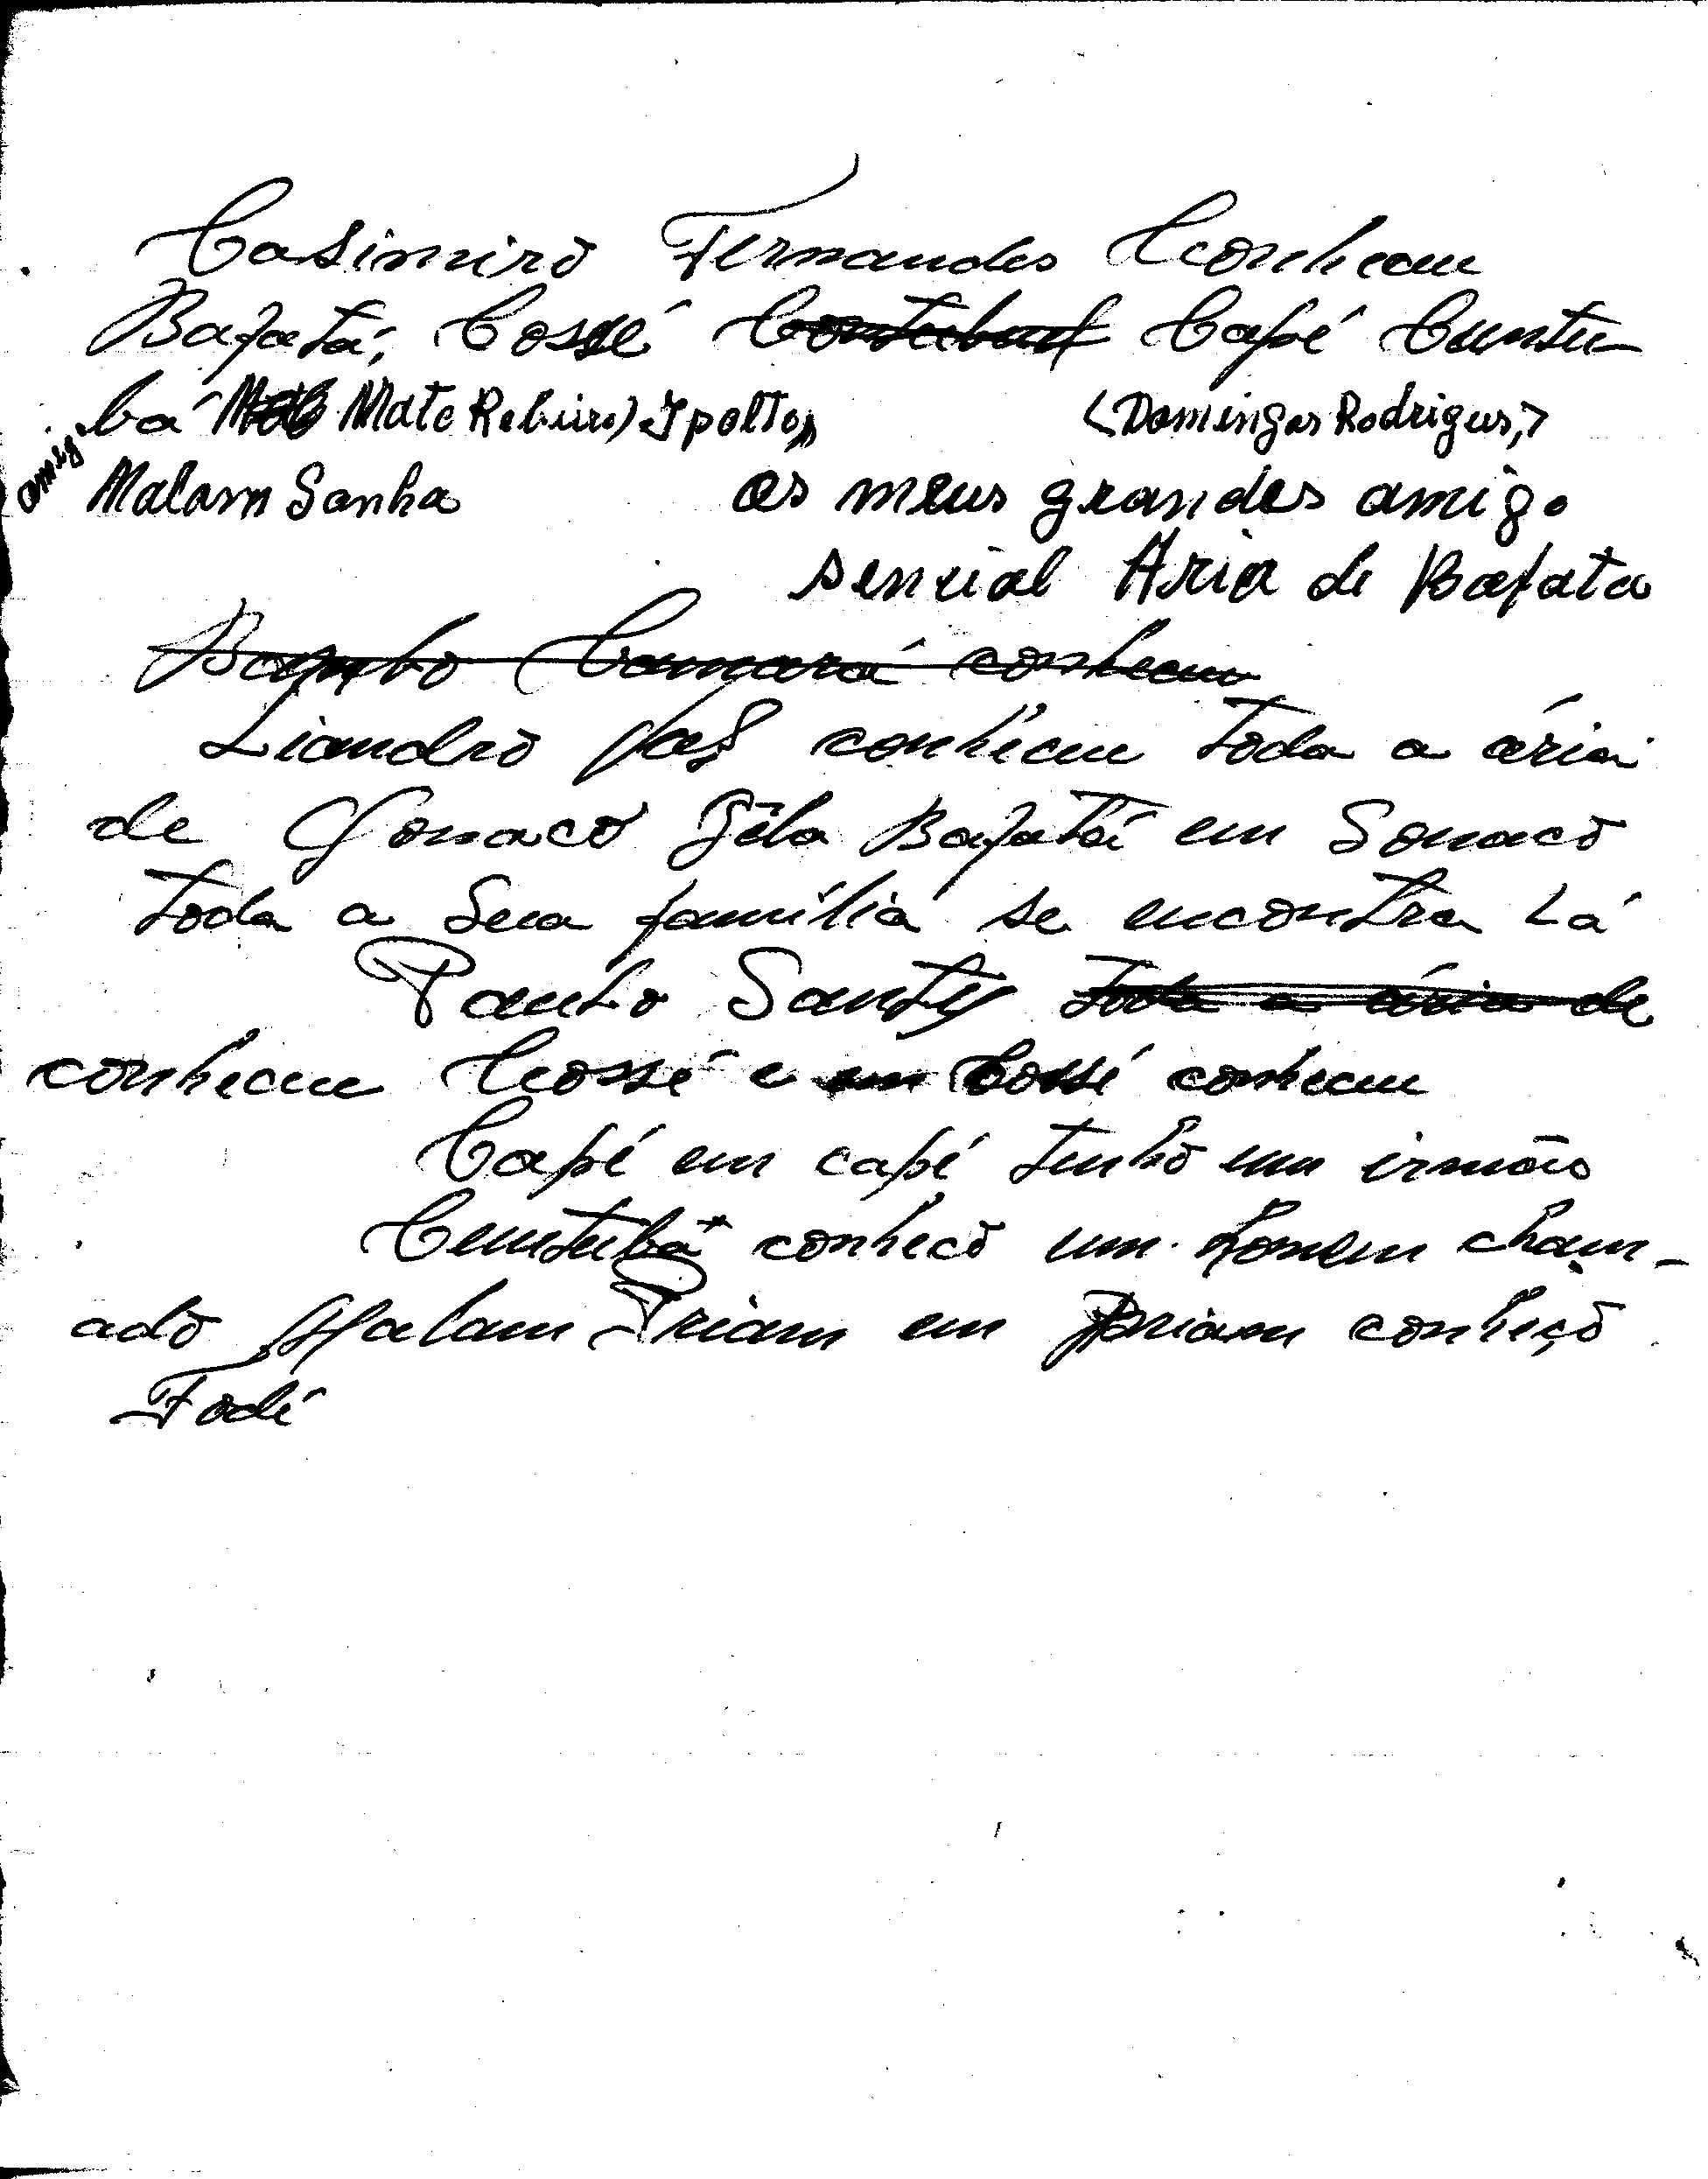 Casimiro Fernandes Conhecem
Bafatá, Cossé Capé Cuntu-
bá Mato Rebeiro) Ipolto,
<Domingos Rodrigues,>
amigo Malam Sanha os meus grandes amigo
sencial Aria de Bafata
Bambo Camará conhecem
Liandro Vas conhecem toda a ária
de Sonaco Gêba Bafatá em Sonaco
toda a Sua família se encontra Lá
Paulo Santy toda a ária de
conhecem Cossé e em Cossé conhecem
Capé em capé tenho um irmão
Cuntubá conheco um homem cham-
ado Malam Priam em Priam conheço
Fodé